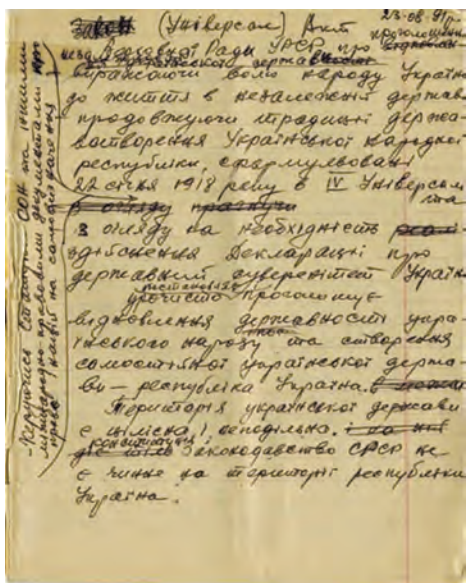 Закон (Універсал) Акт
23-08.91р.
проголошення
Верховної Ради УРСР про
незал української держав
виражаючи волю народу Україн
до життя в незалежній держав
продовжуючи традиції держа-
вотворення Української народної
республіки, сформульовані
22 січня 1918 року в IV Універсалі
та
з огляду на необхідність
здійснення Декларації про
державний суверенітет Україн
постановляє
урочисто проголошує
відновлення державності укра-
їнського народу та створення
самостійної української держа-
ви – республіка Україна.
Територія української держави
є цілісна і неподільна.
конституція
Законодавство СРСР не
є чинне на території республіки
Україна.
-Керуючись Статутом ООН та іншими
міжнародно-правовими документами про
право націй на самовизначення